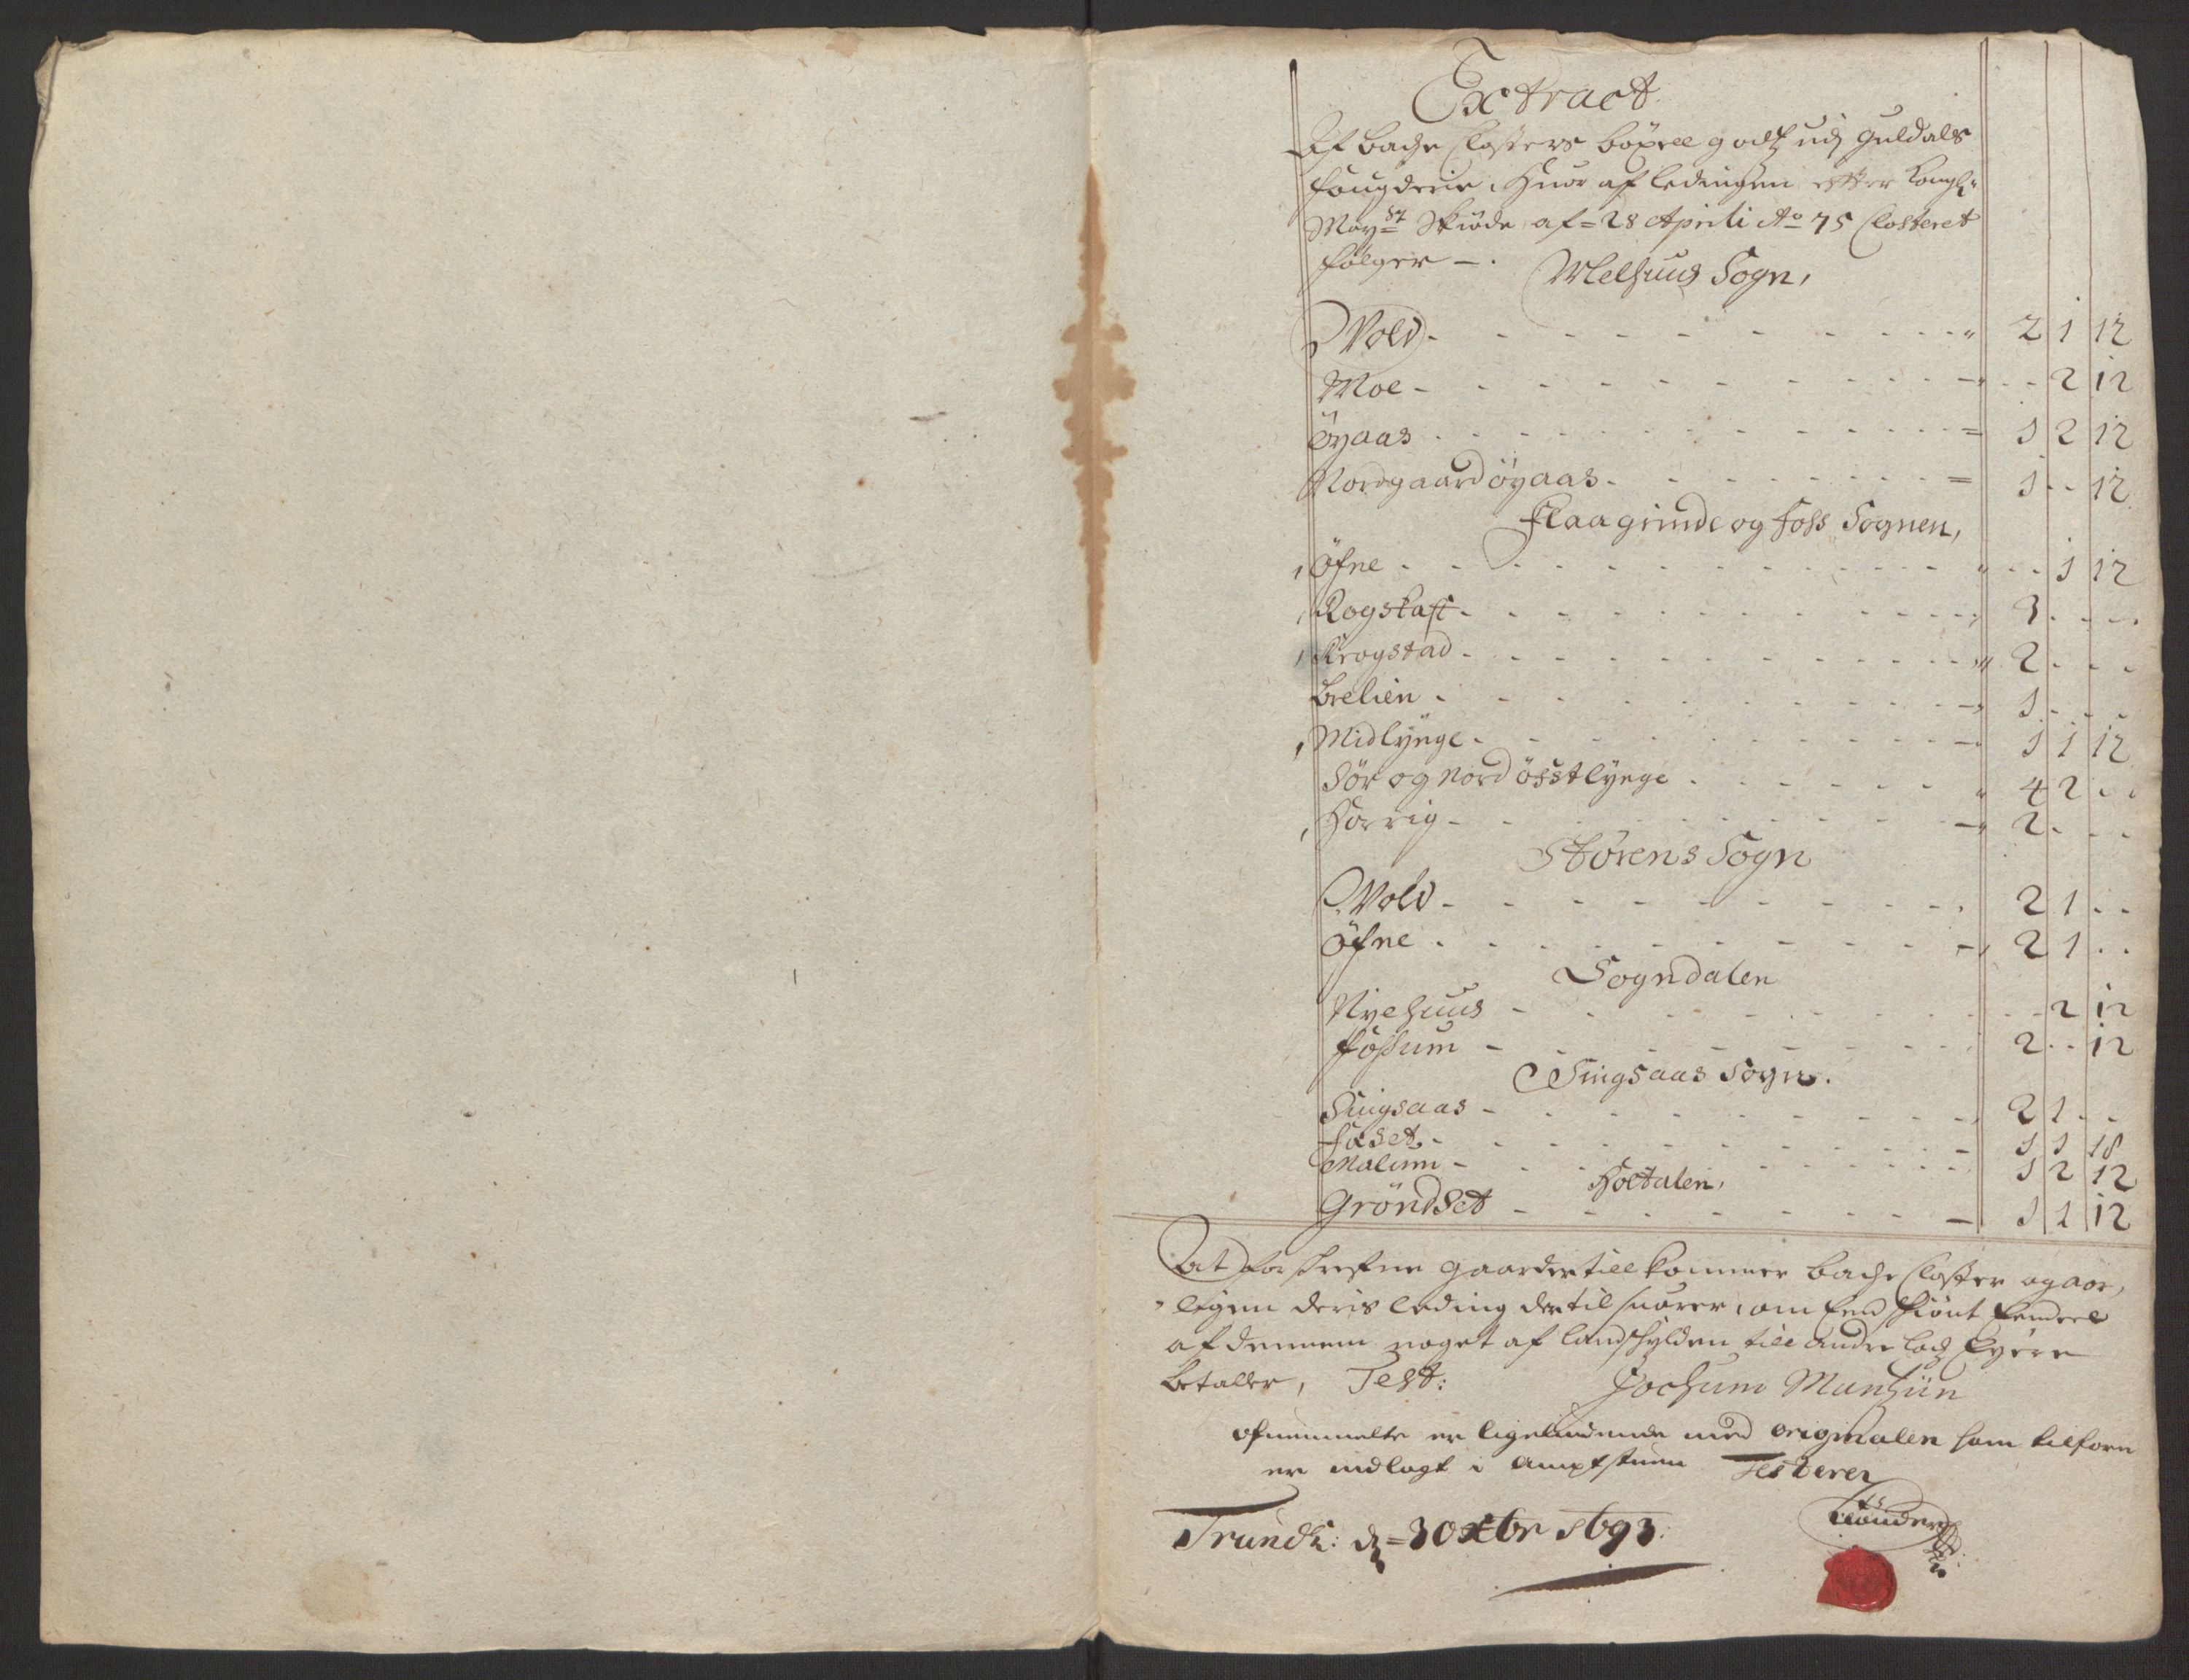 Extract
Af Bache Closters böxell godtz udj Guldals
fougderie, Huor af ledingen efter Kongl:
May:st Skiøde af = 28 Aprili Ao 75 Closteret
følger —.
Melhuus Sogn,
Wold - - - 2 1 12
Moe - - - 2 12
öyaas - - - 1 2 12
Nordgaard öyaas - - - 1 - - 12
Flaa grinde og foss Sognen,
öfne - - - 1 12
Rogstaft - - - 3 - -
Krogstad - - - 2 - -
Brelien - - - 1 - -
Midlynge - - - 1 1 12
Sör og Nord össtlynge - - - 4 2 - -
Horrig - - - 2 - -
Störens Sogn
Wold - - - 2 1 - -
öfne - - - 2 1 - -
Sogndalen
Nyehuus - - - 2 12
fossum - - - 2 - - 12
Singsaas Sogn.
Singsaas - - - 2 1 - -
faset - - - 1 1 18
Malum - - - 1 2 12
Holtalen,
Gröndset - - - 1 1 12
At forschrefne gaarder till kommer Bache Closter og aar,
ligen deris leding dertil suarer, om end skiönt
af dennem noget af landschylden till andre lodz Eyere
betaller, Test: Jochum Munhün
ofuenmelte er ligelindende med originalen som tilforn
er indlagt i Amptstuen Testerer
Trundh: d = 30 xbr 1693.